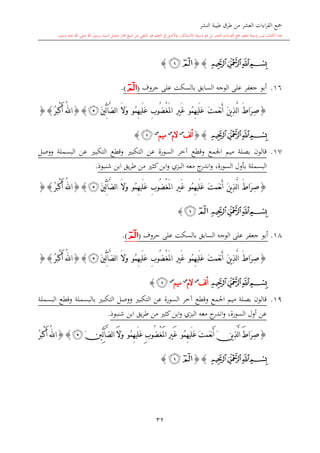 جمع القراءات العشر من طرق طيبة النشر
﴿ بِسْمِ اللَّهِ الرَّحْمَٰنِ الرَّحِيمِ ﴾ ﴿ الٓمٓ ۝١ ﴾
١٦. أبو جعفر على الوجه السابق بالسكت على حروف (الٓمٓ).
﴿ صِرَاطَ الَّذِينَ أَنْعَمْتَ عَلَيْهِمُو غَيْرِ الْمَغْضُوبِ عَلَيْهِمُو وَلَا الضَّآلِّينَ ۝٧ ﴾ ﴿ اللَّهُ أَكْبَرُ ﴾ ﴿
بِسْمِ اللَّهِ الرَّحْمَٰنِ الرَّحِيمِ ﴾ ﴿ ألف س لام س ميم س ۝١ ﴾
١٧. قالون بصلة ميم الجمع وقطع آخر السورة عن التكبير وقطع التكبير عن البسملة ووصل
البسملة بأول السورة، واندرج معه البزي وابن كثير من طريق ابن شنبوذ.
﴿ صِرَاطَ الَّذِينَ أَنْعَمْتَ عَلَيْهِمُو غَيْرِ الْمَغْضُوبِ عَلَيْهِمُو وَلَا الضَّآلِّينَ ۝٧ ﴾ ﴿ اللَّهُ أَكْبَرُ ﴾ ﴿
بِسْمِ اللَّهِ الرَّحْمَٰنِ الرَّحِيمِ الٓمٓ ۝١ ﴾
١٨. أبو جعفر على الوجه السابق بالسكت على حروف (الٓمٓ).
﴿ صِرَاطَ الَّذِينَ أَنْعَمْتَ عَلَيْهِمُو غَيْرِ الْمَغْضُوبِ عَلَيْهِمُو وَلَا الضَّآلِّينَ ۝٧ ﴾ ﴿ اللَّهُ أَكْبَرُ ﴾ ﴿
بِسْمِ اللَّهِ الرَّحْمَٰنِ الرَّحِيمِ ألف س لام س ميم س ۝١ ﴾
١٩. قالون بصلة ميم الجمع وقطع آخر السورة عن التكبير ووصل التكبير بالبسملة وقطع البسملة
عن أول السورة، واندرج معه البزي وابن كثير من طريق ابن شنبوذ.
﴿ صِرَاطَ الَّذِينَ أَنْعَمْتَ عَلَيْهِمُو غَيْرِ الْمَغْضُوبِ عَلَيْهِمُو وَلَا الضَّآلِّينَ ۝٧ ﴾ ﴿ اللَّهُ أَكْبَرُ
بِسْمِ اللَّهِ الرَّحْمَٰنِ الرَّحِيمِ ﴾ ﴿ الٓمٓ ۝١ ﴾
٣٩